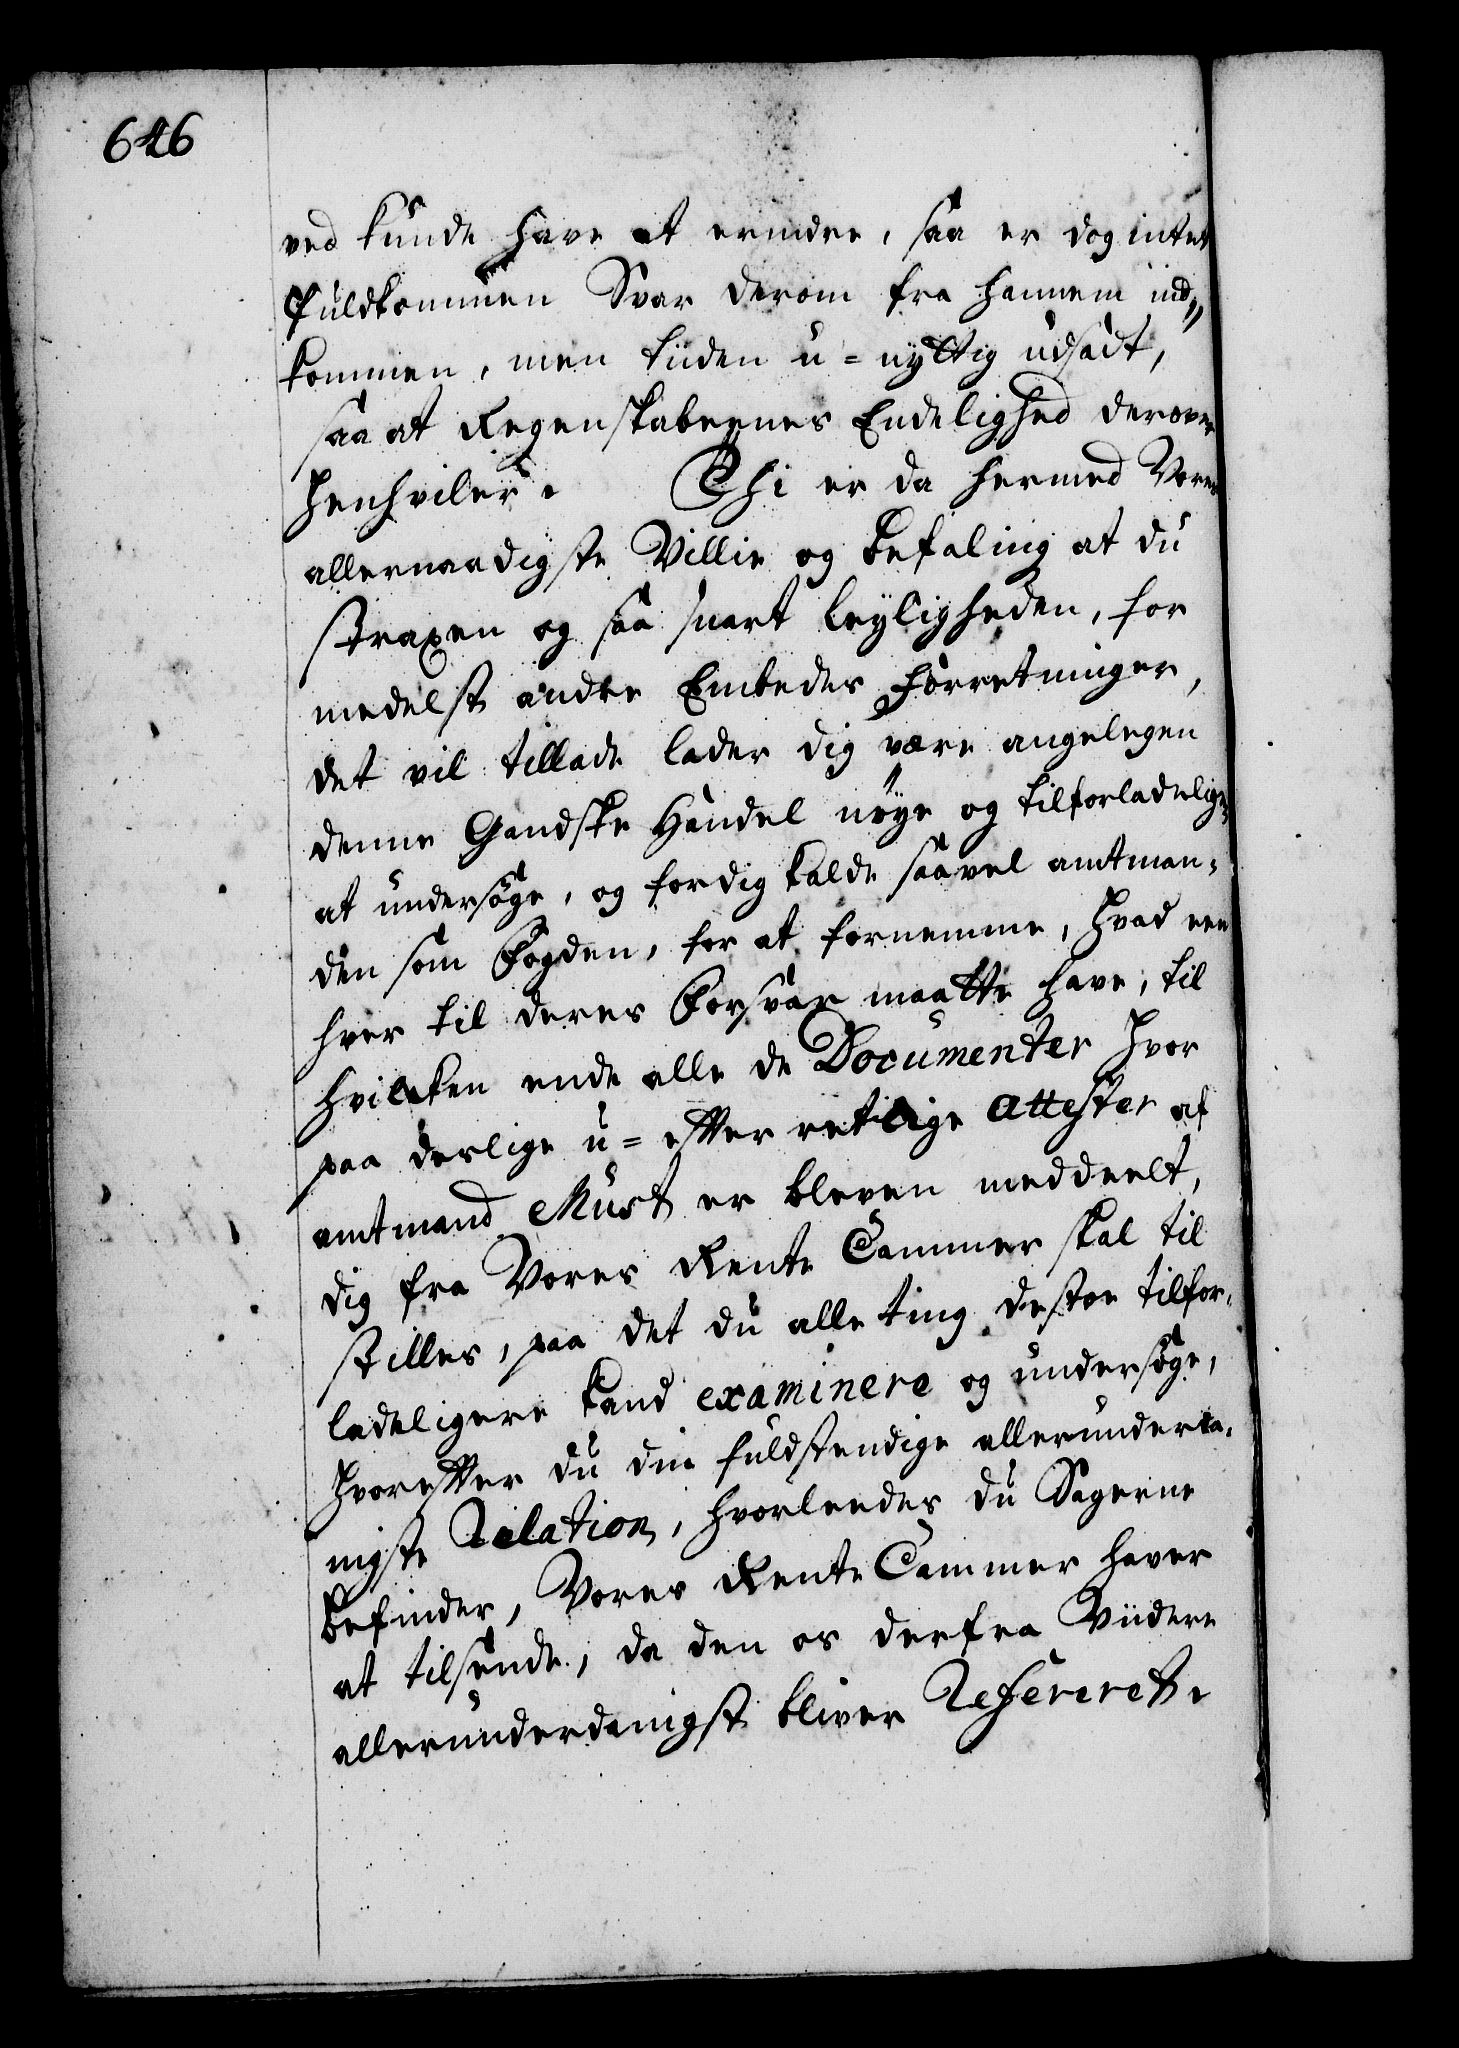 646
ved kunde have at erindre, saa er dog intet
Fuldkommen Svar derom fra hannem ind„
kommen, men tiiden u=nyttig udsadt,
saa at Regenskabernes Endelighed derover
henhviler. Thi er da hermed Vores
allernaadigste Villie og Befaling at du
straxen og saa snart leyligheden, for
medelst andre Embedes forretninger,
det vil tillade lader dig være angelegen
denne Gandske Handel nøye og tilforladelig,
at undersøge, og for dig kalde saavel amtman-
den som Fogden, for at fornemme, hvad een
hver til deres Forsvar maatte have, til
hvilcken ende alle de Documenter hvor
paa derlige u=efterretlige attester af
amtmand Must er bleven meddeelt,
dig fra Vores Rente Cammer skal til
stilles, paa det du alle ting destoe tilfor-
ladeligere kand examinere og undersøge,
hvorefter du din fuldstendige allerunderda-
nigste Relation, hvorleedes du Sagerne
befinder, Vores Rente Cammer haver
at tilsende, da den os derfra Viidere
allerunderdanigst bliver Refereret.